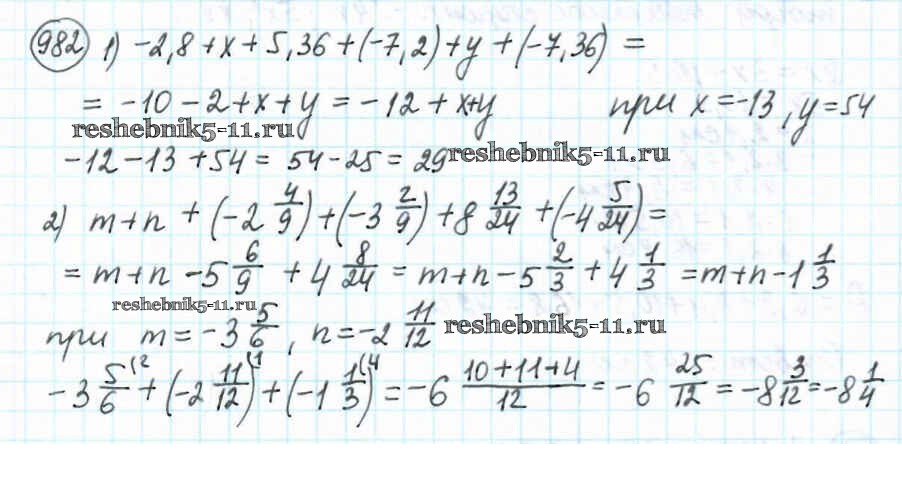 982 1) -2,8 + x + 5,36 + (-7,2) + y + (-7,36) =
= -10 - 2 + x + y = -12 + x+y при x = -13, y = 54
reshebnik5-11.ru
-12 - 13 + 54 = 54 - 25 = 29 reshebnik5-11.ru
2) m + n + (-2 4/9) + (-3 2/9) + 8 13/24 + (-4 5/24) =
= m + n - 5 6/9 + 4 8/24 = m + n - 5 2/3 + 4 1/3 = m + n - 1 1/3
reshebnik5-11.ru
при m = -3 5/6, n = -2 11/12 reshebnik5-11.ru
-3 5/6 (2 + (-2 11/12) (1 + (-1 1/3) (4 = -6 10+11+4/12 = -6 25/12 = -8 3/12 = -8 1/4